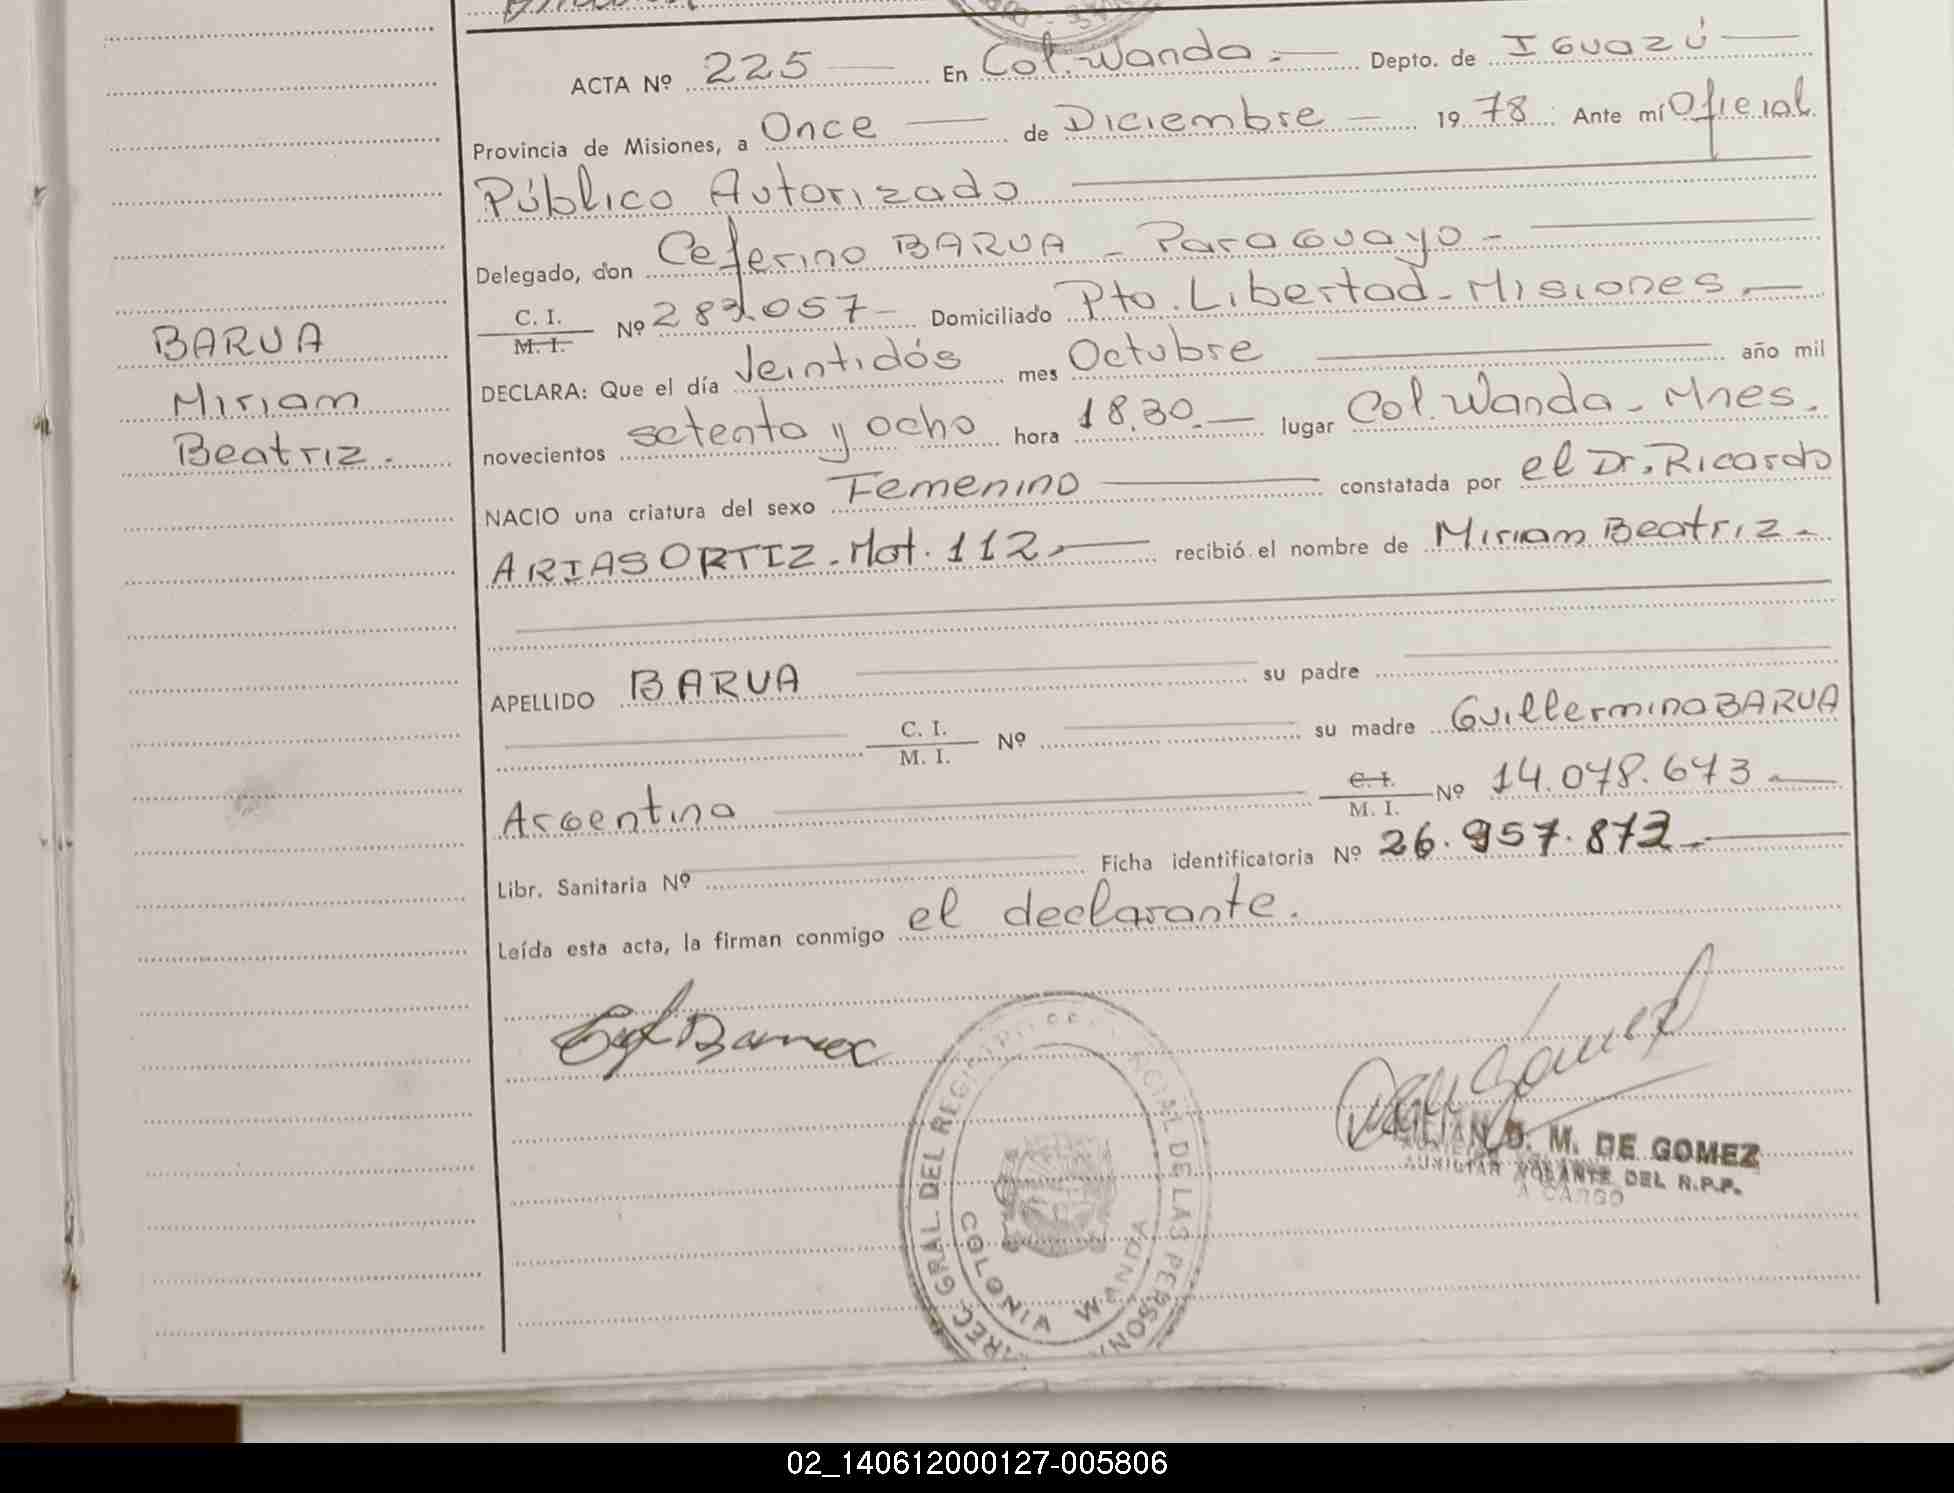 ACTA Nº 225 En Col. Wanda.- Depto. de IGUAZÚ
Provincia de Misiones, a Once de Diciembre 1978 Ante mí Oficial
Público Autorizado
Delegado, don Ceferino BARUA - Paraguayo -
C. I.
M. I. Nº 283.057 - Domiciliado Pto. Libertad - Misiones.-
DECLARA: Que el día Veintidós mes Octubre año mil
novecientos setenta y ocho hora 18.30.- lugar Col. Wanda - Mnes.
NACIO una criatura del sexo Femenino constatada por el Dr. Ricardo
ARIAS ORTIZ - Mat. 112.- recibió el nombre de Miriam Beatriz.-
APELLIDO BARUA su padre
C. I.
M. I. Nº su madre Guillermina BARUA
Argentina C. I.
M. I. Nº 14.078.673.-
Libr. Sanitaria Nº Ficha identificatoria Nº 26.957.873.-
Leída esta acta, la firman conmigo el declarante.
BARUA
Miriam
Beatriz.-
DEL REGI
DE LAS PERSON
COLONIA WANDA
D. M. DE GOMEZ
AUXILIAR VOLANTE DEL R.P.P.
A CARGO
02_140612000127-005806